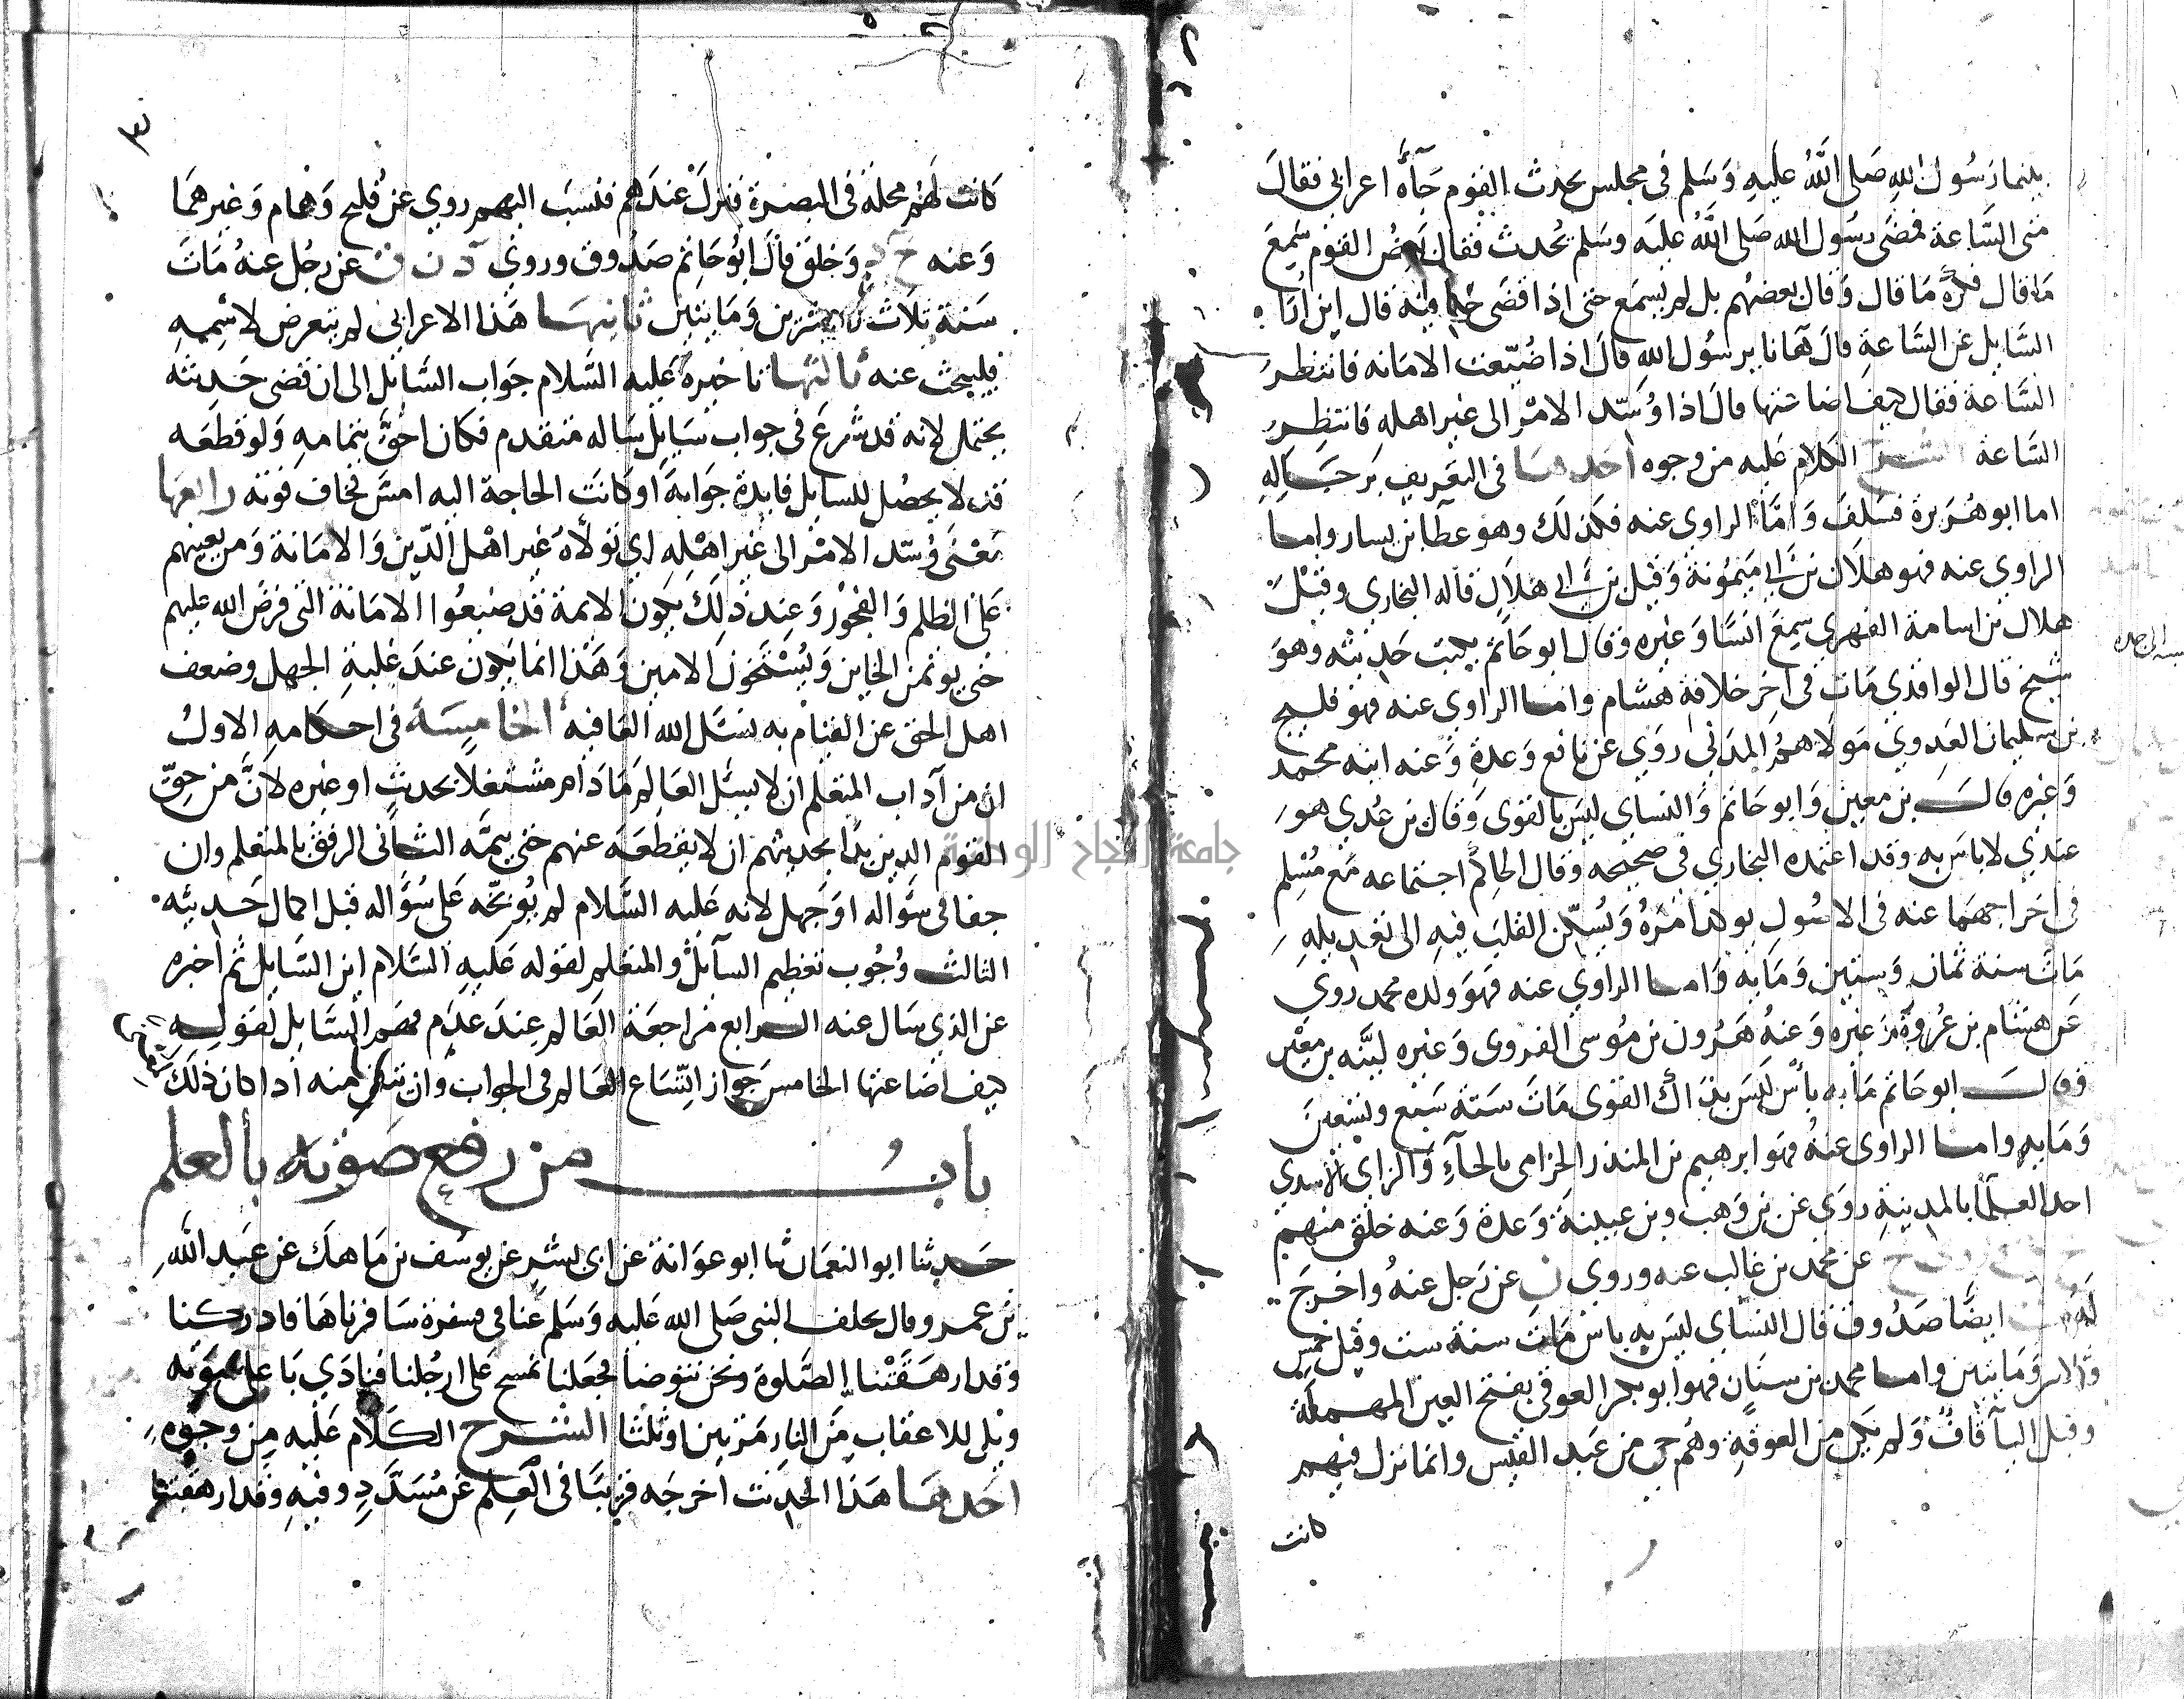 بينما رسول الله صلى الله عليه وسلم في مجلس يحدث القوم جآه اعرابي فقال
متى الساعة فمضى رسول الله صلى الله عليه وسلم يحدث فقال بعض القوم سمع
ما قال فكره ما قال وقال بعضهم بل لم يسمع حتى اذا قضى حديثه قال اين اُرا
السايل عن الساعة قال هآنا يرسول الله قال اذا ضيّعت الامانه فانتظر
الساعة فقال كيف اضاعتها قال اذا وُسّد الامر الى غير اهله فانتظر
الساعة الشرح الكلام عليه من وجوه احدها في التعريف برجاله
اما ابو هريرة فسلف وامّا الراوي عنه فكذلك وهو عطا بن يسار واما
الراوي عنه فهو هلال بن ابي ميمونة وقيل بن ابي هلال قاله البخاري وقيل
هلال بن اسامة الفهري سمع انسا وغيره وقال ابو حاتم يكتب حديثه وهو
شيخ قال الواقدي مات في اخر خلافة هشام واما الراوي عنه فهو فليح
بن سليمان العدوي مولاهم المدني روي عن نافع وعدة وعنه ابنه محمد
وغيره قال بن معين وابو حاتم والنساي ليس بالقوى وقال بن عدي هو
عندي لا باس به وقد اعتمده البخاري في صحيحه وقال الحاكم اجتماعه مع مسلم
في اخراجهما عنه في الاصول يوكد امره ويُسكّن القلب فيه الى تعديله
مات سنة ثمان وستين ومايه واما الراوي عنه فهو ولده محمد روي
عن هشام بن عروة وغيره وعنه هرون بن موسى الفروى وغيره ليّنه بن معين
وقال ابو حاتم ما به بأس ليس بذاك القوى مات سنة سبع وتسعين
ومايه واما الراوى عنه فهو ابرهيم بن المنذر الحزامى بالحآء والزاى الاسدي
احد العلمآ بالمدينة روي عن بن وهب وبن عيينة وعدة وعنه خلق منهم
عن محمد بن غالب عنه وروي ن عن رجل عنه واخرج
له ايضًا صدوق قال النساي ليس به باس مات سنة ست وقيل خمس
وثلاثين وماتين واما محمد بن سنان فهو ابو بكر العوقي بفتح العين المهملة
وقبل اليآ قاف ولم يكن من العوقة وهم حي من عبد القيس وانما نزل فيهم
كانت
كانت لهم محلة في البصرة فنزل عندهم فنسب اليهم روي عن فليح وهمام وغيرهما
وعنه خ د وخلق قال ابو حاتم صدوق وروي عن رجل عنه مات
سنة ثلاث وعشرين وماتين ثانيها هذا الاعرابي لم يتعرض لاسمه
فليبحث عنه ثالثها تاخيره عليه السلام جواب السائل الى ان قضى حديثه
يحتمل لانه قد شرع في جواب سايل ساله متقدم فكان احقّ بتمامه ولو قطعه
قد لا يحصل للسايل فايدة جوابه او كانت الحاجة اليه امسّ فخاف فوته رابعها
معنى وُسّد الامر الى غير اهله اي تولاه غير اهل الدّين والامانة ومن يعينهم
على الظلم والفجور وعند ذلك يكون الائمة قد ضيعوا الامانة التي فرض الله عليهم
حتى يوتمن الخاين ويُستخون الامين وهذا انما يكون عند غلبة الجهل وضعف
اهل الحق عن القيام به نسئل الله العافيه الخامسة في احكامه الاول
ان من آداب المتعلم ان لا يسئل العالم ما دام مشتغلا بحديث او غيره لانّ من حقّ
القوم الذين بدا بحديثهم ان لا يقطعه عنهم حتى يتمّه الثاني الرفق بالمتعلم وان
جفا في سؤاله او جهل لانه عليه السلام لم يوبّخه على سؤاله قبل اكمال حديثه
الثالث وجوب تعظيم السآئل والمتعلم لقوله عليه السلام اين السايل ثم اخبره
عن الذي سال عنه الرابع مراجعة العالم عند عدم فهم السايل لقوله
كيف اضاعتها الخامس جواز اتّساع العالم في الجواب وان ينبغي منه اذا كان ذلك
باب من رفع صوته بالعلم
حدثنا ابو النعمان ثنا ابو عوانة عن ابي بشر عن يوسف بن ماهك عن عبد الله
بن عمرو وقال تخلف النبي صلى الله عليه وسلم عنا في سفرة سافرناها فادركنا
وقد ارهقتنا الصّلوة ونحن نتوضا فجعلنا نمسح على ارجلنا فنادي باعلى صوته
ويل للاعقاب من النار مرتين او ثلثا الشرح الكلام عليه من وجوه
احدها هذا الحديث اخرجه قريبًا في العلم عن مُسَدّد وفيه وقد ارهقتنا